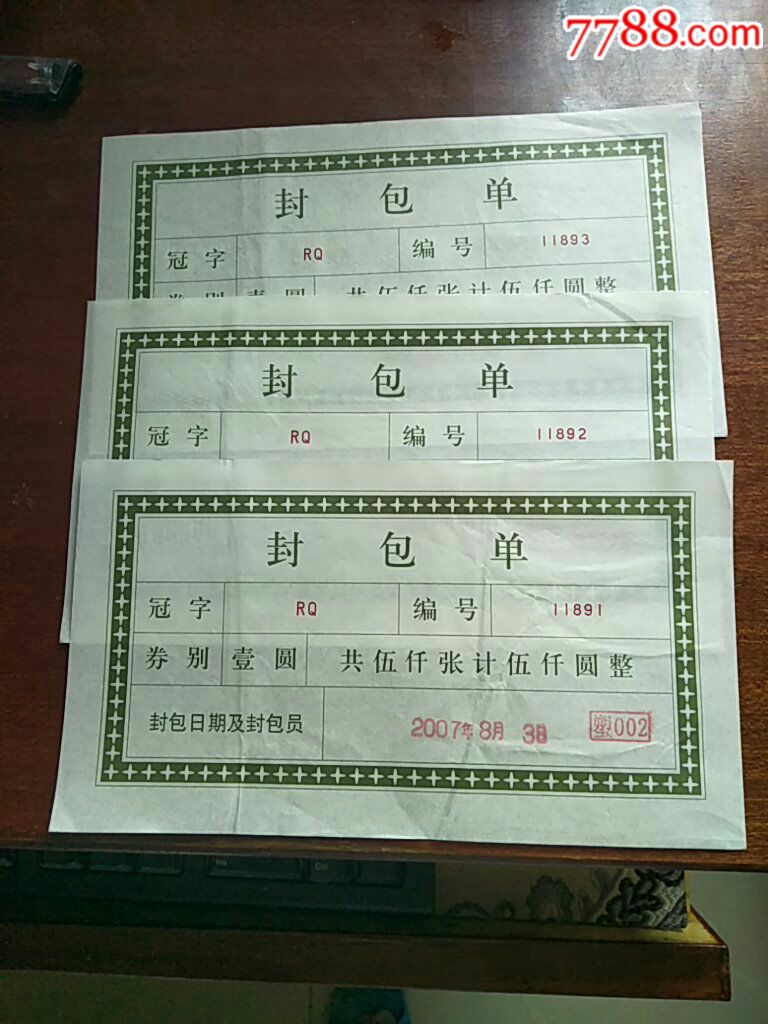 7788.com
封包单
冠字 RQ 编号 11893
券别 壹圆 共伍仟张计伍仟圆整
封包单
冠字 RQ 编号 11892
封包单
冠字 RQ 编号 11891
券别 壹圆 共伍仟张计伍仟圆整
封包日期及封包员 2007年8月3日 塑002
Ins
Del